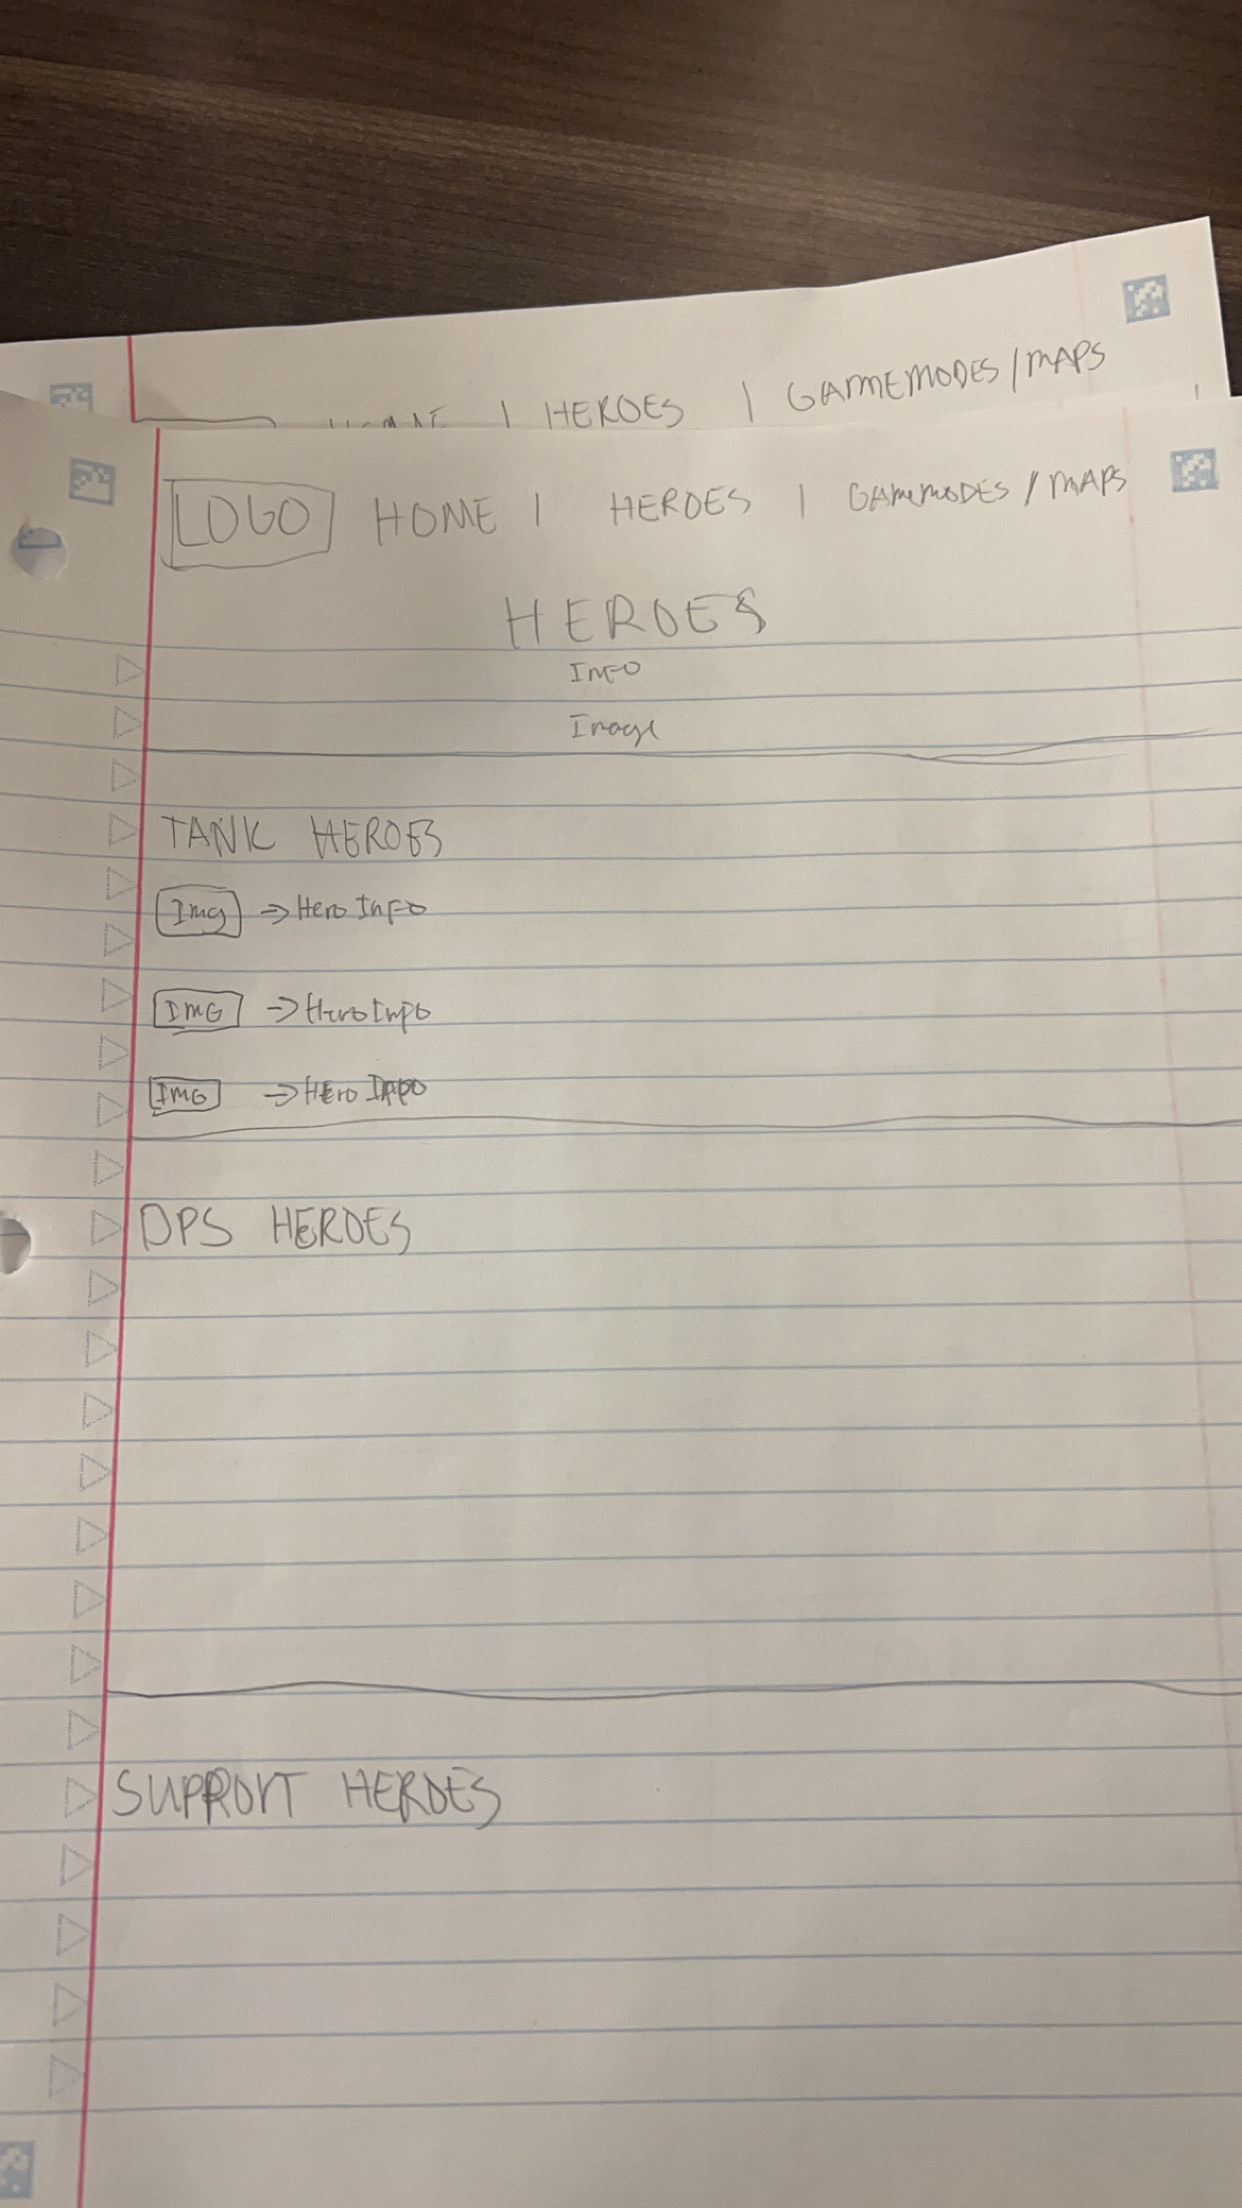 HEROES | GAMEMODES / MAPS
LOGO HOME | HEROES | GAMEMODES / MAPS
HEROES
Info
Image
TANK HEROES
Img → Hero Info
IMG → Hero Info
IMG → Hero Info
DPS HEROES
SUPPORT HEROES